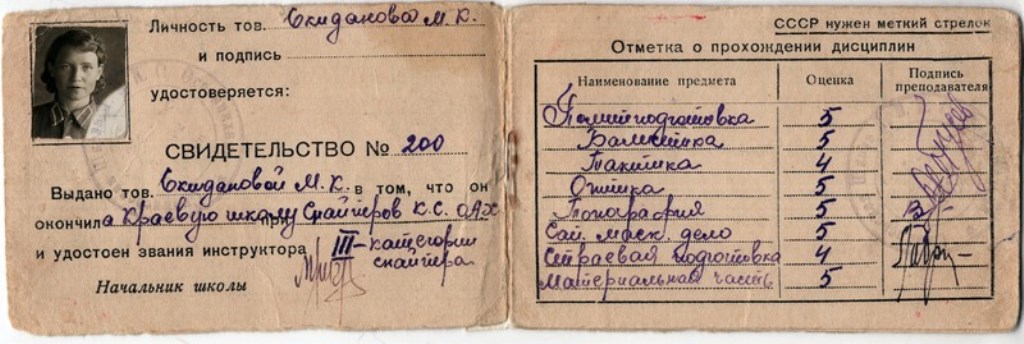 Личность тов. Скиданова М. К.
и подпись
удостоверяется:
СВИДЕТЕЛЬСТВО № 200
Выдано тов. Скидановой М. К. в том, что он
окончила краевую школу снайперов К.С. ОАХ
при
и удостоен звания инструктора III-категории
снайпера
Начальник школы
СССР нужен меткий стрелок
Отметка о прохождении дисциплин
Наименование предмета Оценка Подпись преподавателя
Политподготовка 5
Балистика 5
Тактика 4
Оптика 5
Топография 5
Сап. маск. дело 5
Страевая подготовка 4
Материальная часть 5